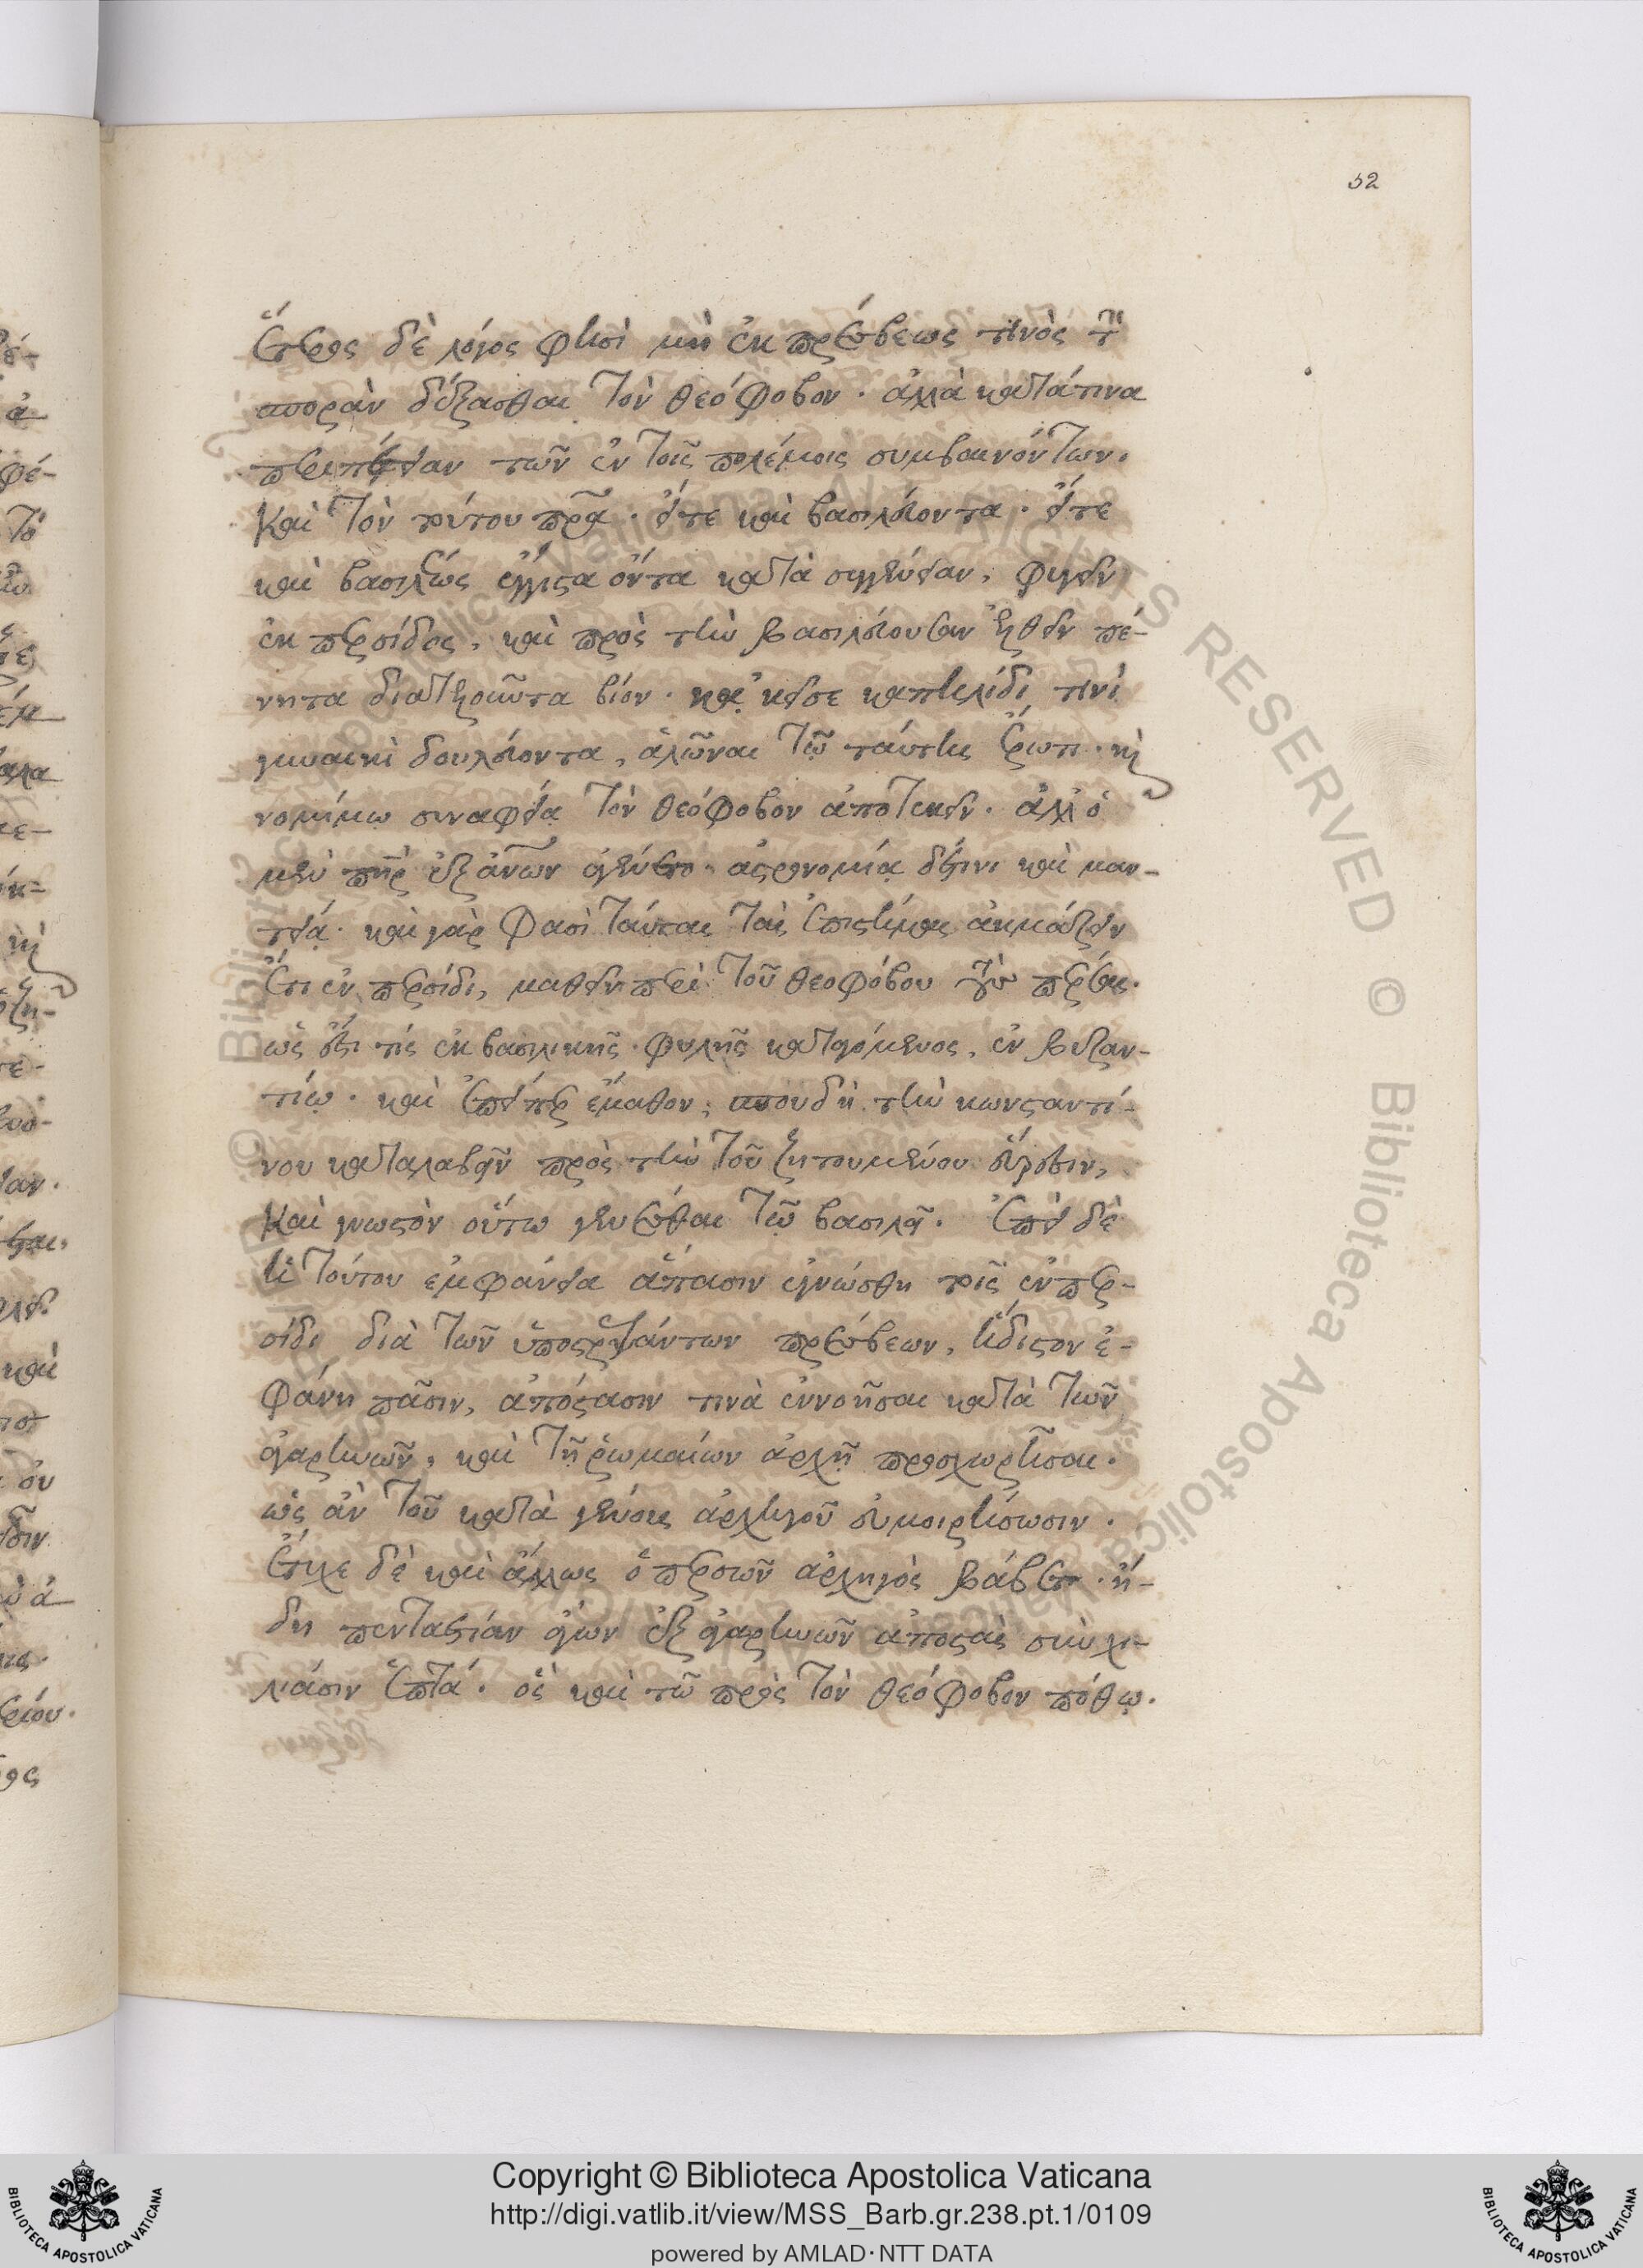 52
Ἕτερος δὲ λόγος φησὶ μὴ ἐκ πρέσβεως τινὸς τὴν
σπορὰν δέξασθαι τὸν θεόφοβον. ἀλλὰ κατάτινα
περιπέτειαν τῶν ἐν τοῖς πολέμοις συμβαινόντων.
καὶ τὸν τούτου πρα. εἴτε καὶ βασιλεύοντα. εἴτε
καὶ βασιλέως ἔγγιστα ὄντα κατὰ συγγένειαν, φυγεῖν
ἐκ περσίδος, καὶ πρὸς τὴν βασιλεύουσαν ἐλθεῖν πέ-
νητα διατηροῦντα βίον. κἀκεῖσε καπηλίδι τινὶ
γυναικὶ δουλεύοντα, ἁλῶναι τῷ ταύτης ἔρωτι. καὶ
νομίμῳ συναφείᾳ τὸν θεόφοβον ἀποτεκεῖν. ἀλλ' ὁ
μὲν πηρ ἐξ ἀνων ἐγένετο. ἀστρονομίᾳ δέ τινι καὶ μαν-
τείᾳ. καὶ γὰρ φασὶ ταύταις ταῖς ἐπιστήμαις ἀκμάζειν
ἔτι ἐν περσίδι, μαθεῖν περὶ τοῦ θεοφόβου τοὺς πέρσας.
ὡς ἔστι τίς ἐκ βασιλικῆς φυλῆς καταγόμενος, ἐν βυζαν-
τίῳ. καὶ ἐπείπερ ἔμαθον, σπουδῇ τὴν κωνσταντί-
νου καταλαβεῖν πρὸς τὴν τοῦ ζητουμένου εὕρεσιν,
καὶ γνωστὸν οὕτω γενέσθαι τῷ βασιλεῖ. ἐπεὶ δὲ
ἡ τούτου ἐμφάνεια ἅπασιν ἐγνώσθη τοῖς ἐν περ-
σίδι διὰ τῶν ὑποστρεψάντων πρέσβεων, ἥδιστον ἐ-
φάνη πᾶσιν, ἀπόστασιν τινὰ ἐννοῆσαι κατὰ τῶν
ἀγαρηνῶν, καὶ τῇ ῥωμαίων ἀρχῇ προσχωρῆσαι.
ὡς ἂν τοῦ κατὰ γένους ἀρχηγοῦ εὐμοιρήσωσιν.
ἔτυχε δὲ καὶ ἄλλως ὁ περσῶν ἀρχηγὸς βάβεκ. ἤ-
δη πενταετίαν ἄγων ἐξ ἀγαρηνῶν ἀποστὰς σὺν χι-
λιάσιν ἑπτά. ὃς καὶ τῷ πρὸς τὸν θεόφοβον πόθῳ.
Copyright © Biblioteca Apostolica Vaticana
http://digi.vatlib.it/view/MSS_Barb.gr.238.pt.1/0109
powered by AMLAD·NTT DATA